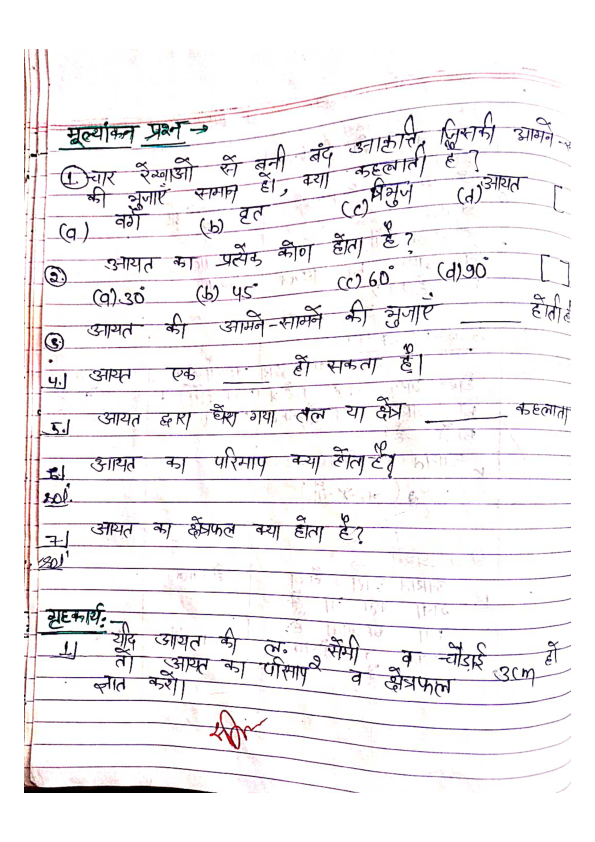 मूल्यांकन प्रश्न →
1. चार रेखाओं से बनी बंद आकृति, जिसकी आमने-
की भुजाएँ समान हों, क्या कहलाती है ?
(a) वर्ग (b) वृत (c) त्रिभुज (d) आयत [
2. आयत का प्रत्येक कोण होता है ?
(a) 30° (b) 45° (c) 60° (d) 90° [ ]
3. आयत की आमने-सामने की भुजाएँ ____ होती है
4. आयत एक ____ हो सकता है।
5. आयत द्वारा घेरा गया तल या क्षेत्र ______ कहलाता
6. आयत का परिमाप क्या होता है?
Sol.
7. आयत का क्षेत्रफल क्या होता है?
Sol.
गृहकार्य:-
1. यदि आयत की ल. 2 सेमी व चौड़ाई 3cm हो
तो आयत का परिमाप व क्षेत्रफल
ज्ञात करो।